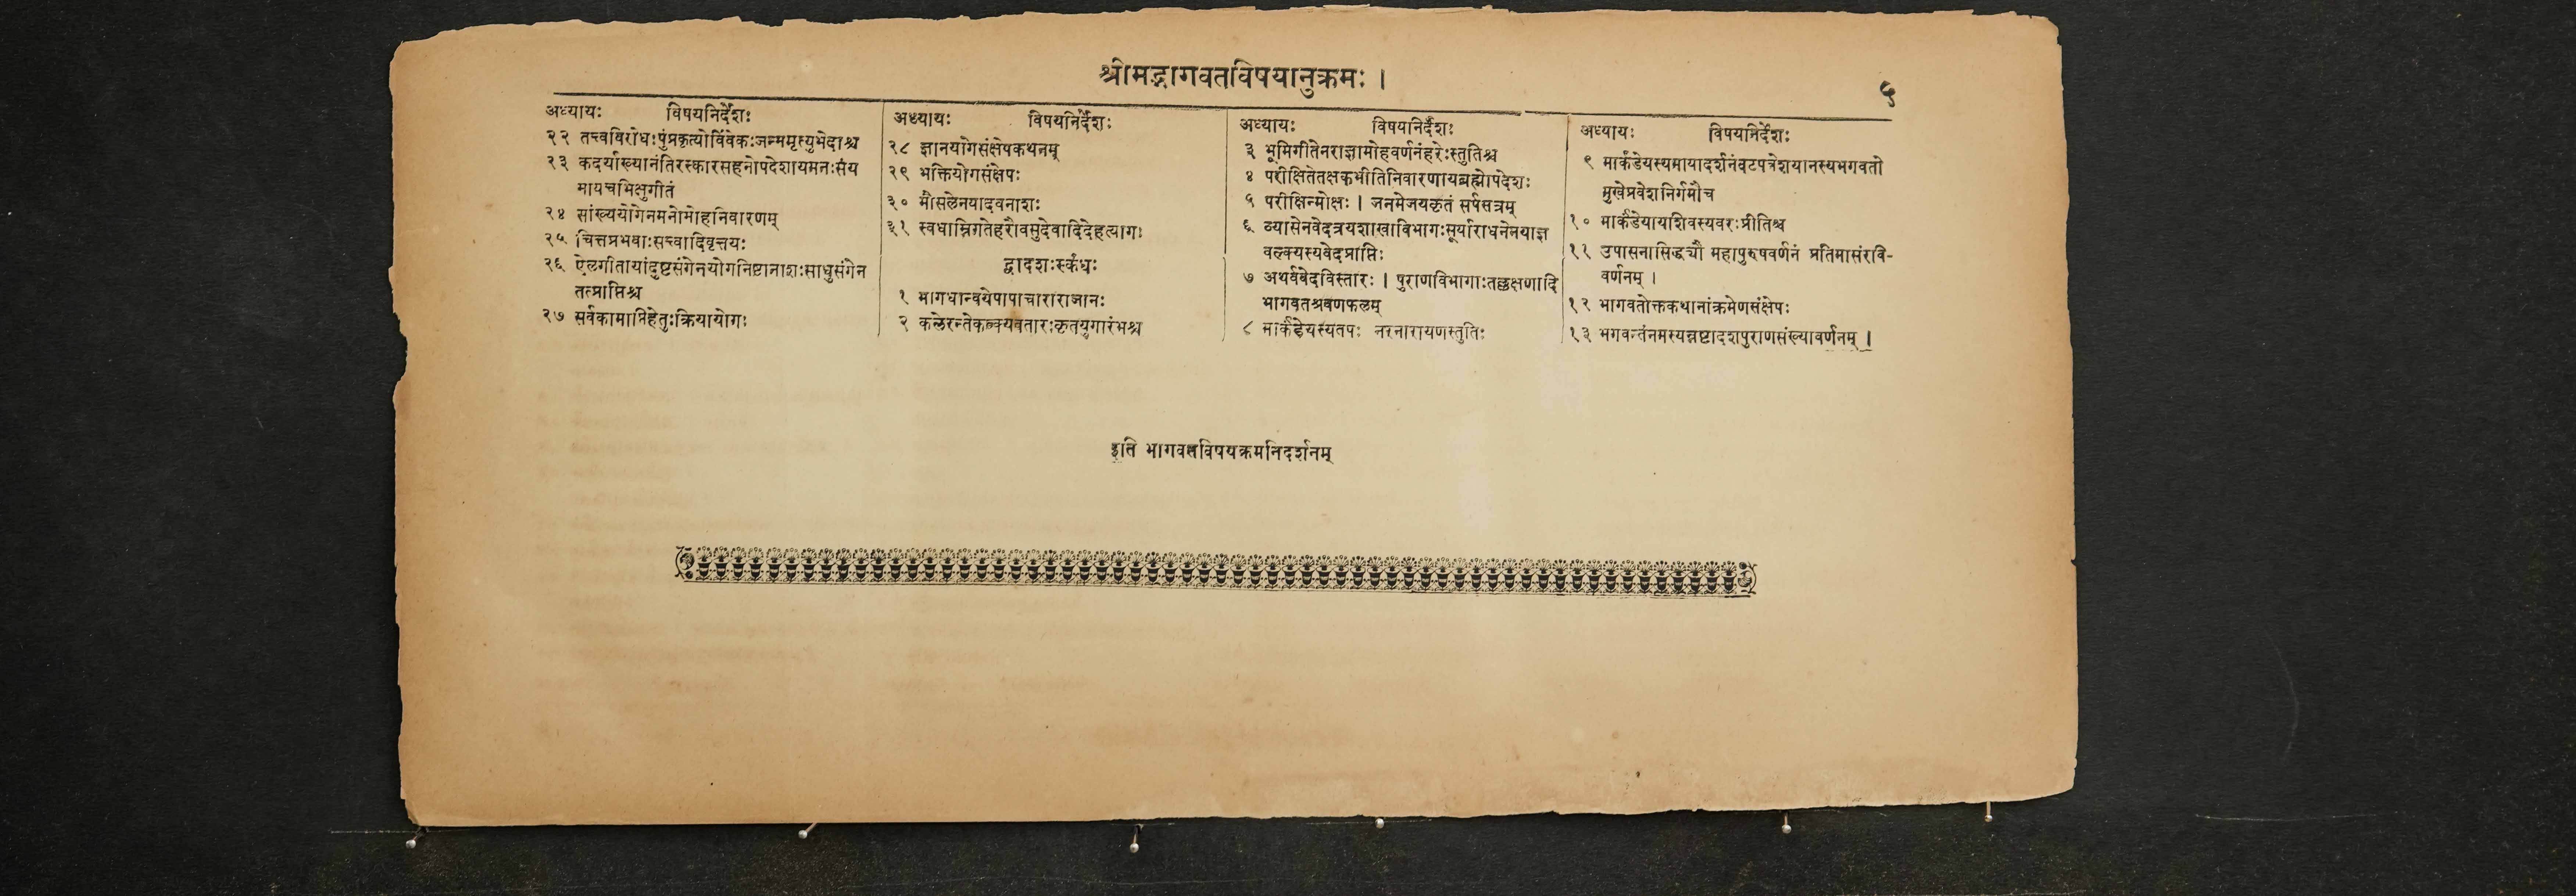 श्रीमद्भागवतविषयानुक्रमः ।
५
अध्यायः विषयनिर्देशः
२२ तत्त्वविरोधःपुंप्रकृत्योर्विवेकःजन्ममृत्युभेदाश्च
२३ कदर्याख्यानंतिरस्कारसहनोपदेशायमनःसंय
मायचभिक्षुगीतं
२४ सांख्ययोगेनमनोमोहनिवारणम्
२५ चित्तप्रभवाःसत्त्वादिवृत्तयः
२६ ऐलगीतायांदुष्टसंगेनयोगनिष्टानाशःसाधुसंगेन
तत्प्राप्तिश्च
२७ सर्वकामाप्तिहेतुःक्रियायोगः
अध्यायः विषयनिर्देशः
२८ ज्ञानयोगसंक्षेपकथनम्
२९ भक्तियोगसंक्षेपः
३० मौसलेनयादवनाशः
३१ स्वधाम्निगतेहरौवसुदेवादिदेहत्यागः
द्वादशःस्कंधः
१ मागधान्वयेपापाचाराराजानः
२ कलेरन्तेकल्क्यवतारःकृतयुगारंभश्च
अध्यायः विषयनिर्देशः
३ भूमिगीतेनराज्ञामोहवर्णनंहरेःस्तुतिश्च
४ परीक्षितेतक्षकभीतिनिवारणायब्रह्मोपदेशः
५ परीक्षिन्मोक्षः । जनमेजयकृतं सर्पसत्रम्
६ व्यासेनवेदत्रयशाखाविभागःसूर्याराधनेनयाज्ञ
वल्क्यस्यवेदप्राप्तिः
७ अथर्ववेदविस्तारः । पुराणविभागाःतल्लक्षणादि
भागवतश्रवणफलम्
८ मार्कंडेयस्यतपः नरनारायणस्तुतिः
अध्यायः विषयनिर्देशः
९ मार्कंडेयस्यमायादर्शनंवटपत्रेशयानस्यभगवतो
मुखेप्रवेशनिर्गमौच
१० मार्कंडेयायशिवस्यवरःप्रीतिश्च
११ उपासनासिद्ध्यौ महापुरुषवर्णनं प्रतिमासंरवि-
वर्णनम् ।
१२ भागवतोक्तकथानांक्रमेणसंक्षेपः
१३ भगवन्तंनमस्यन्नष्टादशपुराणसंख्यावर्णनम् ।
इति भागवतविषयक्रमनिदर्शनम्